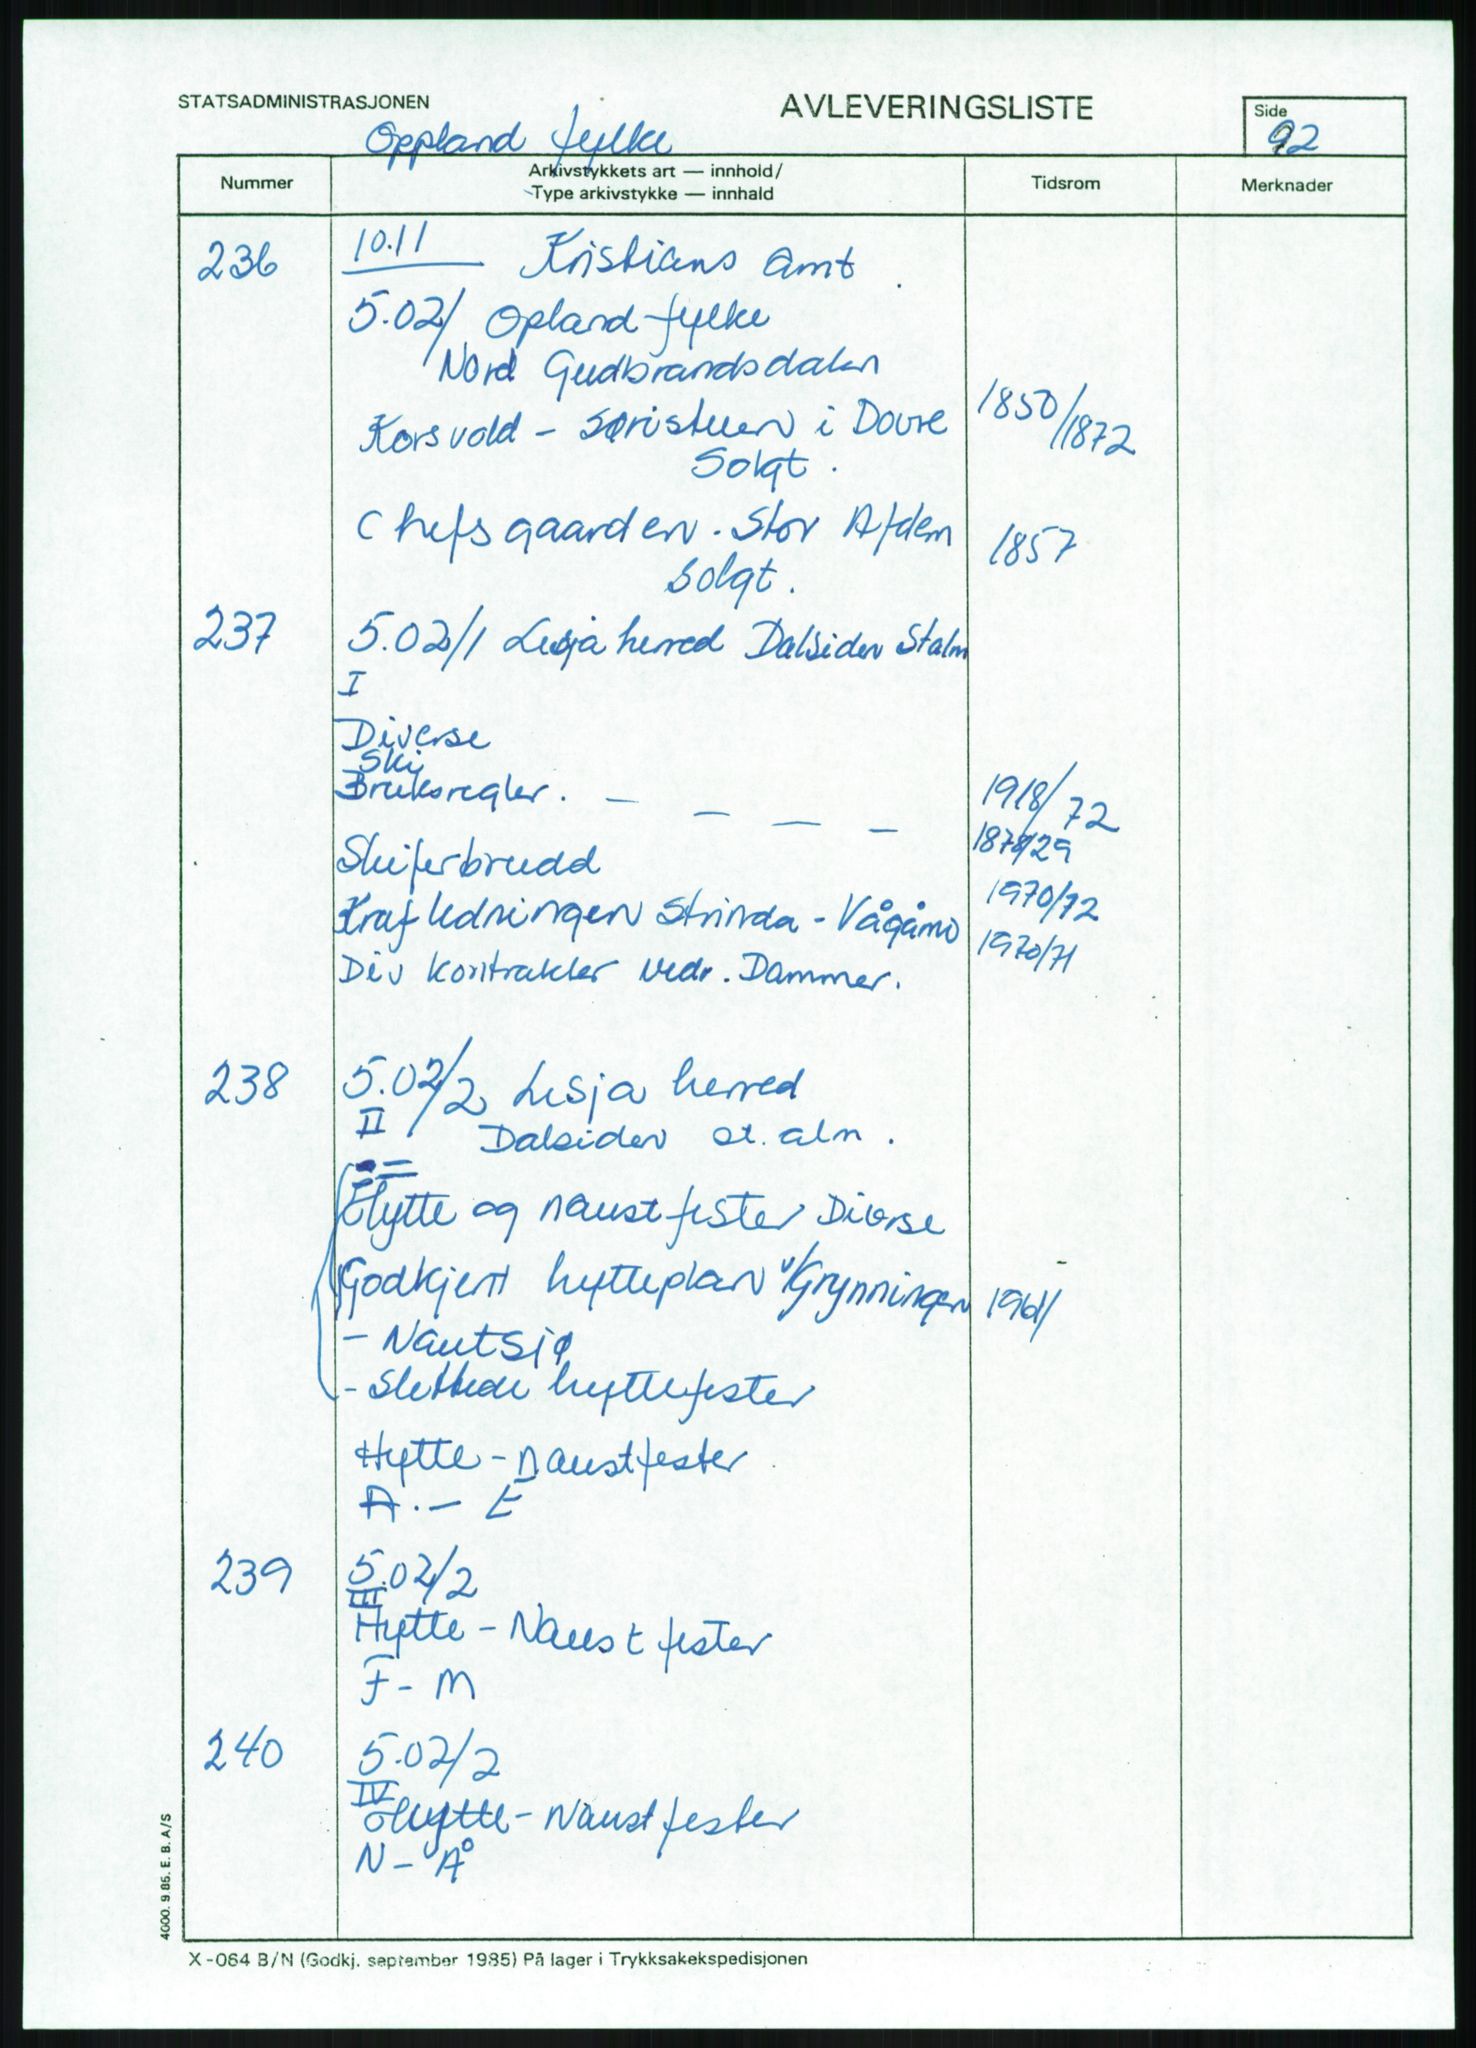 STATSADMINISTRASJONEN
AVLEVERINGSLISTE
Side
92
Oppland fylke
Nummer
Arkivstykkets art — innhold/
Type arkivstykke — innhald
Tidsrom
Merknader
236 10.11 Kristians Amt
5.02/ Opland fylke
Nord Gudbrandsdalen
Korsvold - Søristuen i Dovre 1850/1872
Solgt.
Chefsgaarden. Stor 1857
Solgt.
237 5.02/1 Lesja herred Dalsiden Stalm
I
Diverse
Ski
Bruksregler. — — — — 1918/72
Skiferbrudd 1878/29
Krafledningen Strinda - Vågåmo 1970/72
Div kontrakter vedr. Dammer. 1970/71
238 5.02/2 Lesja herred
II Dalsiden st. alm.
Hytte og naustfester Diverse
Godkjent hytteplan v/Grynningen
- Nautsjø
- Slettede hyttefester
Hytte - naustfester
A. - E
239 5.02/2
III
Hytte - Naustfester
F - M
240 5.02/2
IV
Hytte - Naustfester
N - Å
4000. 9.85. E. B. A/S
X-064 B/N (Godkj. september 1985) På lager i Trykksakekspedisjonen